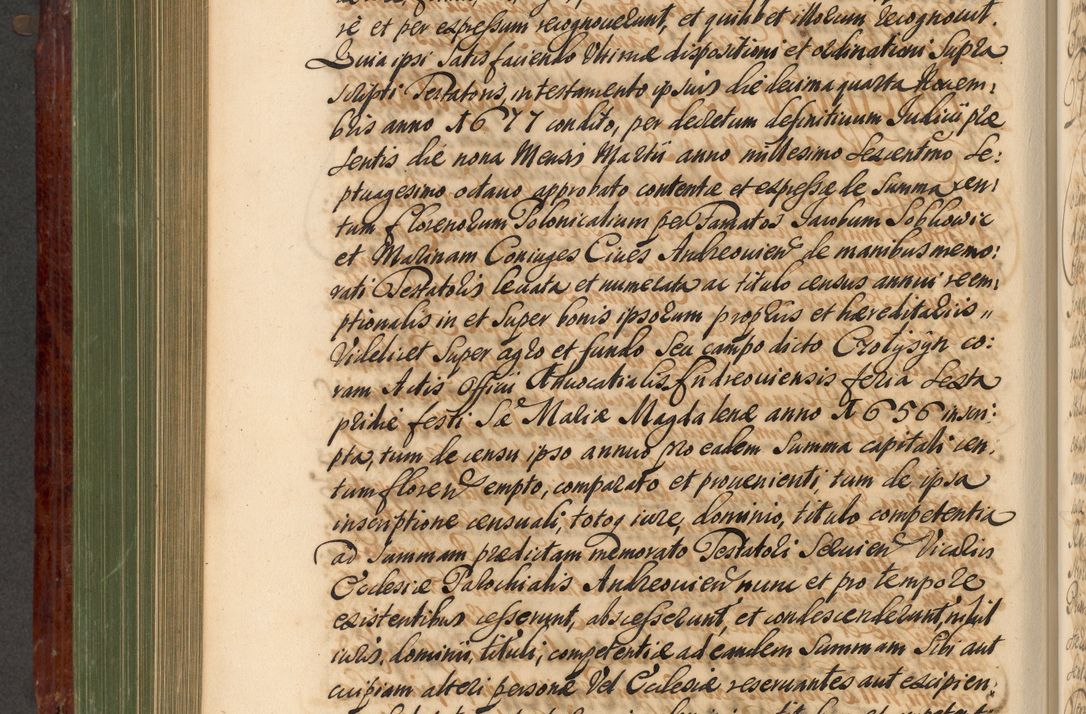 re et per expressum recognoverunt, et quilibet illorum recognovit.
Quia ipsi satisfaciendo Vltimæ dispositioni et ordinationi Supra
scripti Testatoris, in testamento ipsius die decima quarta Novem,
bris anno 1677 condito, per decretum definitivum Judicii præ
sentis die nona Mensis Martii anno millesimo sexcentmo se:
ptuagesimo octavo approbato contentæ et expressæ de Summa cen,
tum florenorum Polonicalium per Famatos Jacobum Sobkowic
et Marinam Coniuges Cives Andreovien de manibus memo:
rati Testatoris levata et numerata ac titulo census annui reem,
ptionalis in et super bonis ipsorum propriis et hæreditariis
Videlicet Super agro et fundo seu campo dicto Crotysyn co:
ram Actis Officii Advocatialis Andreoviensis feria sexta
pridie festi Sæ Mariæ Magdalenæ anno 1656 inscri:
pta, tum de censu ipso annuo pro eadem Summa capitali cen,
tum floren empto, comparato et provenienti, tum de ipsa
inscriptione censuali, totoq iure, dominio, titulo competentia
ad Summam prædictam memorato Testatori Servien Vicariis
Ecclesiæ Parochialis Andreovien nunc et pro tempore
existentibus cesserunt, abscesserunt, et condescenderunt, nihil
iuris, dominii, tituli, competentiæ ad eandem Summam Sibi aut
cuipiam alteri personæ Vel Ecclesiæ reservantes aut excipien: